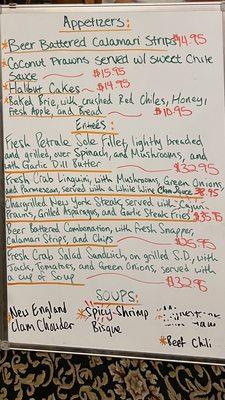 Appetizers:
Beer Battered Calamari Strips $14.95
Coconut Prawns served w/ sweet Chile
Sauce $15.95
Halibut Cakes $14.95
Baked Brie, with crushed Red Chiles, Honey,
Fresh Apple, and Bread $16.95
Entrées:
Fresh Petrale Sole Fillet, lightly breaded
and grilled, over Spinach, and Mushrooms, and
with Garlic Dill Butter $32.95
Fresh Crab Linguini, with Mushrooms, Green Onions
and Parmesean, served with a White Wine Clam Sauce
Chargrilled New York Steak, served with Cajun
Prawns, Grilled Asparagus, and Garlic Steak Fries $35.95
Beer Battered Combination, with fresh Snapper,
Calamari Strips, and Chips
Fresh Crab Salad Sandwich, on grilled S.D., with
Jack, Tomatoes, and Green Onions, served with
a cup of Soup $32.95
SOUPS:
New England Spicy Shrimp
Clam Chowder Bisque
Beef Chili